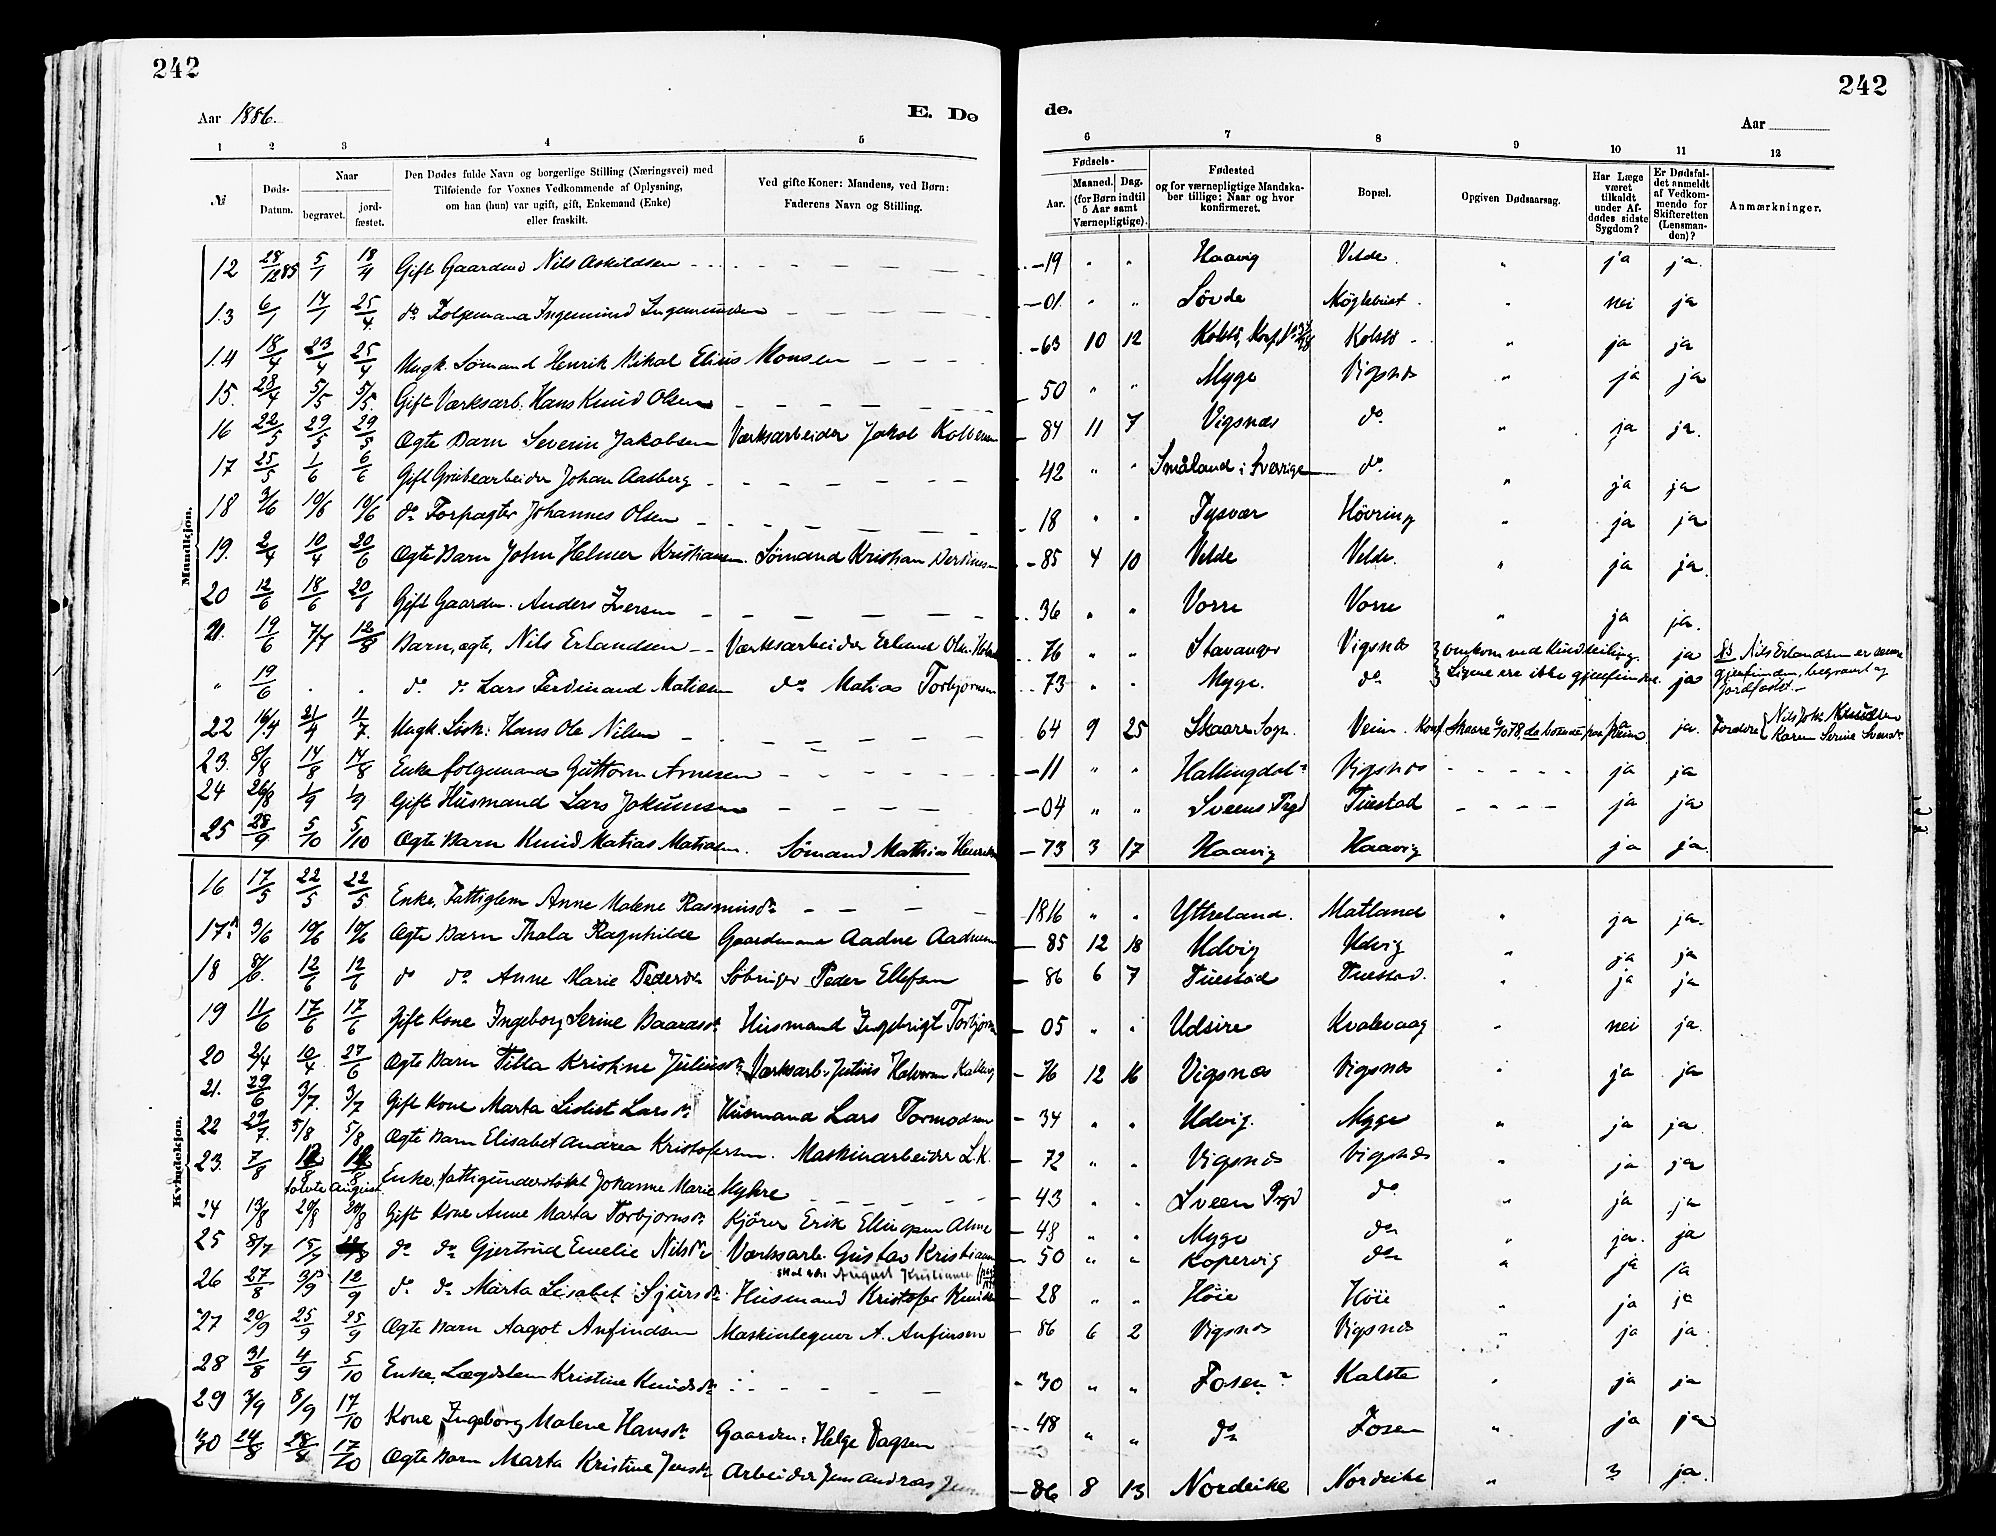 242
242
Aar 1886.
E. Do
de.
Aar
1 2 3 4 5 6 7 8 9 10 11 12
№
Døds-Datum.
Naar
begravet.
jord-fæstet.
Den Dødes fulde Navn og borgerlige Stilling (Næringsvei) med
Tilføiende for Voxnes Vedkommende af Oplysning,
om han (hun) var ugift, gift, Enkemand (Enke)
eller fraskilt.
Ved gifte Koner: Mandens, ved Børn:
Faderens Navn og Stilling.
Fødsels-
Aar.
Maaned. Dag.
(for Børn indtil
5 Aar samt
Værnepligtige).
Fødested
og for værnepligtige Mandska-
ber tillige: Naar og hvor
konfirmeret.
Bopæl.
Opgiven Dødsaarsag.
Har Læge
været
tilkaldt
under Af-
dødes sidste
Sygdom?
Er Dødsfal-
det anmeldt
af Vedkom-
mende for
Skifteretten
(Lensman-
den)?
Anmærkninger.
Mandkjøn.
12 28/12 85 5/1 18/4 Gift Gaardmd Nils Askildsen - - - 19 " " Haavig Velde " ja ja.
13 6/1 14/1 25/4 do Folgemand Ingemund Ingemundsen - 01. " " Søvde " nei ja
14 18/4 23/4 25/4 Ungk. Sømand Henrik Nikal Elius Monsen - 63 10 12 " ja ja
15. 28/4 5/5 5/5. Gift Værksarb. Hans Knud Olsen - 50 " " Myge Vigsnes " ja ja
16 22/5 29/5 29/5 Ægte Barn Severin Jakobsen Værksarbeider Jakob - 84 11 7 Vigsnæs do " ja ja.
17 25/5 1/6 6/6 Gift Grubearbeider Johan Aasberg - 42 " " Småland i Sverrige do " ja ja
18 3/6 10/6 10/6 do Forpagter Johannes Olsen - 18 " " Tysvær Høvring " ja ja
19. 2/4 10/4 20/6 Ægte Barn John Helmer Kristiansen. Sømand Kristian - 85 4 10 Velde Velde. " ja ja.
20 12/6 18/6 20/6 Gift Gaardm. Anders Iversen - 36 " " Vorre Vorre " ja ja.
21. 19/6 7/7 12/8 Barn, ægte, Nils Erlandsen - - Værksarbeider Erland Olsen - 76 " " Stavanger Vigsnes omkom ved Kindseiling. ja NB Nils Erlandsen er senere
" 19/6 . . do do Lars Ferdinand Matisen do Matias Torbjørnsen - 73 " " Myge. do Ligene ere ikke gjenfundne. ja gjenfunden, begravet og
jordfæstet. -
22 16/4 21/4 11/7. Ungk. Hans Ole Nilsen - 64 9 25 Skaare Sogn. Konf. Skaare ja. Forældre Nils Joh. Knudsen
Karen Serine
23. 8/8 14/8 14/8 Enke folgemand Guttorm Arnesen - 11 " " Hallingdal Vigsnes - - - ja ja
24 26/8 1/9 1/9 Gift Husmand Lars Jokumsen - 04 " " Sveens Prgd Tuestad - - - ja ja
25 28/9 5/10 5/10 Ægte Barn Knud Matias Matiasen. Sømand Mathias - 73 3 17 Haavig Haavig ja ja.
Kvindekjøn.
16 17/5 22/5 22/5 Enke, Fattiglem Anne Malene Rasmusdtr - 1816 " " Yttreland. Matland " ja ja.
17. 3/6 10/6 10/6 Ægte Barn Thala Ragnhilde Gaardmand Aadne Aadnesen - 85 12 18 Udvig Udvig " ja ja
18 8/6. 12/6 12/6 do do Anne Marie Pedersdtr Søbruger Peder Ellefsen - 86 6 7 Tuestad Tuestad. ja ja
19 11/6 17/6 17/6 Gift Kone Ingeborg Serine Baardsdtr Husmand Ingebrigt Torbjørn - 05 " " Udsire Kvalevaag " nei ja.
20 2/4 10/4 27/6 Ægte Barn Tilla Kristine Juliusdtr Værksarb. Julius Halvorsen - 76 12 16 Vigsnes Vigsnes " ja ja
21. 29/6 3/7. 3/7 Gift Kone Marta Lisbet Larsdtr Husmand Lars Tormodsen - 34 " " Udvig. Myge " ja ja.
22 29/7. 5/8 5/8 Ægte Barn Elisabet Andrea Kristofersen. Maskinarbeider L. K. - 72 " " Vigsnes Vigsnes " ja ja
23. 7/8 12/8 12/8 Enke, fattigunderstøttet Johanne Marie Myhre - 43 " " Sveen Prgd do " ja ja
tolvte august.
24 19/8 20/8 20/8 Gift Kone Anne Marta Torbjørnsdtr Kjører Erik - 48 " " Myge do " ja. ja
25 8/7 15/7 do do Gjertrud Emelie Nilsdtr Værksarb. Gustav Kristiansen - 50 " " Kopervig do " ja ja
skal være August Kristiansen
26 27/8 3/9 12/9 do do Marta Lisabet Sjursdtr Husmand Kristofer Knudsen - 28 " " Høie Høie " ja ja
27 20/9 25/9 25/9 Ægte Barn Aagot Anfindsen Maskintegner A. Anfinsen - 86 6 2 Vigsnes Vigsnes " ja ja.
28 31/8 4/9 5/10 Enke, Lægdslem Kristine Knudsdtr - 30 " " Fosen Kalstø " ja ja
29 3/9 8/9 17/10 Kone Ingeborg Malene Hansdtr Gaardm. Helge Dagsen - 48 " " do Fosen " ja ja
30 24/8 28/8 17/10 Ægte Barn Marta Kristine Jensdtr Arbeider Jens Andreas - 86 8 13 Nordeike Nordeike " ja.